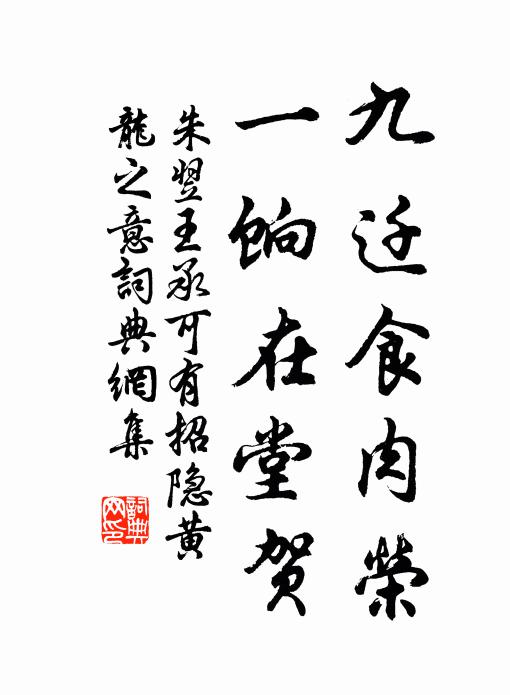 九迁食肉榮
一餉在堂贺
朱翌王承可有招隐黄
龍之意詞典網集
詞典网印